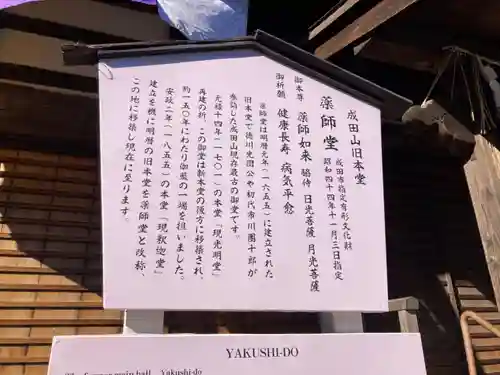 成田山旧本堂
薬師堂
成田市指定有形文化財
昭和四十四年十一月三日指定
御本尊 薬師如来 脇侍 日光菩薩 月光菩薩
御祈願 健康長寿 病気平愈
薬師堂は明暦元年（一六五五）に建立された
旧本堂で徳川光圀公や初代市川團十郎が
参詣した成田山現存最古の御堂です。
元禄十四年（一七〇一）の本堂「現光明堂」
再建の折、この御堂は新本堂の後方に移築され、
約一五〇年にわたり伽藍の一端を担いました。
安政二年（一八五五）の本堂「現釈迦堂」
建立を機に明暦の旧本堂を薬師堂と改称、
この地に移築し現在に至ります。
YAKUSHI-DO
The former main hall, Yakushi-do